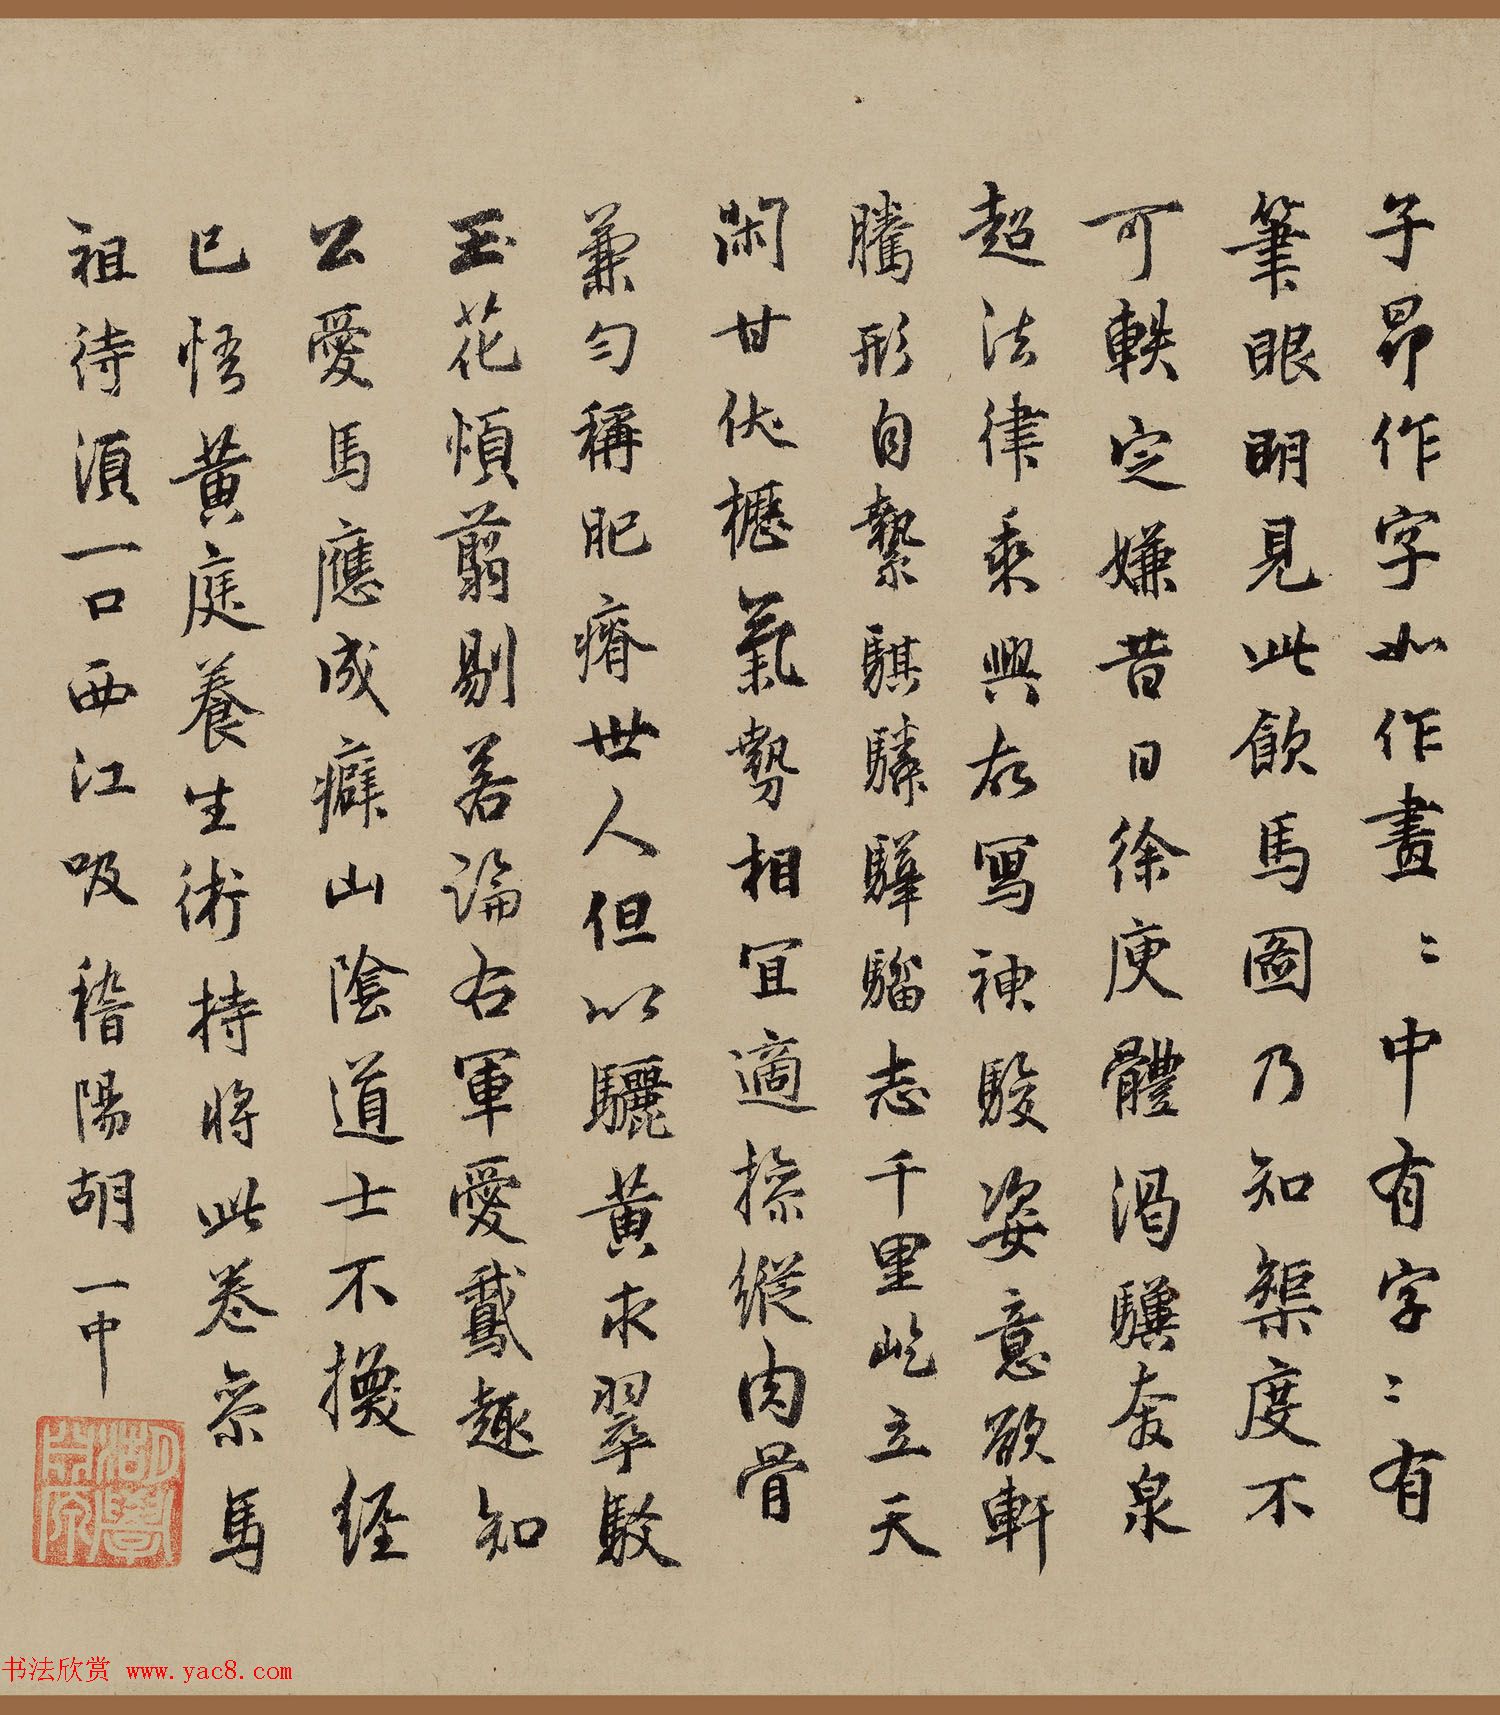 子昂作字如作畫〻中有字〻有
筆眼明見此飲馬圖乃知榘度不
可軼定嫌昔日徐庾體渴驥奔泉
超法律乘興亦寫神駿姿意欲軒
騰形自縶騏驎驊騮志千里屹立天
閑甘伏櫪氣勢相宜適操縱肉骨
兼勻稱肥瘠世人但以驪黃求翠駮
玉花煩翦剔若論右軍愛鵞趣知
公愛馬應成癖山陰道士不換經
已悟黃庭養生術持將此卷參馬
祖待須一口西江吸稽陽胡一中
書法欣赏 www.yac8.com